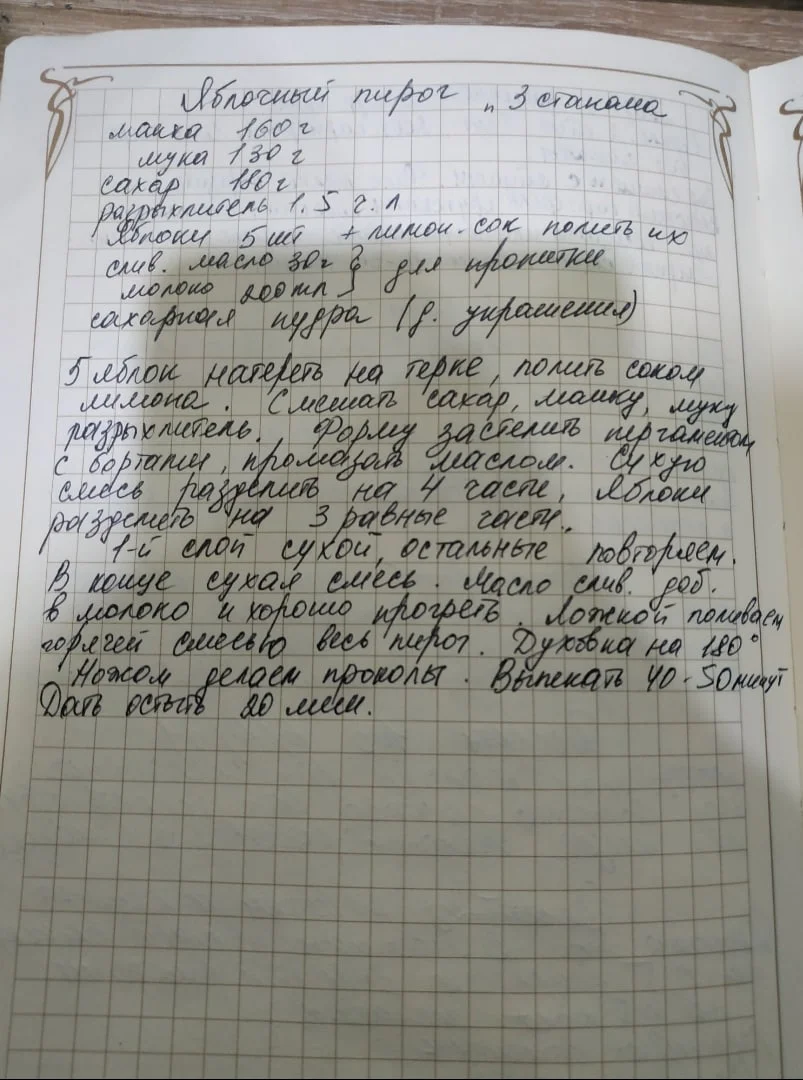 Яблочный пирог „ 3 стакана
манка 160 г
мука 130 г
сахар 180 г.
разрыхлитель 1.5 ч. л
Яблоки 5 шт + лимон. сок полить их
слив. масло 30 г } для пропитки
молоко 200 мл }
сахарная пудра (д. украшения)
5 яблок натереть на терке, полить соком
лимона. Смешать сахар, манку, муку
разрыхлитель. Форму застелить пергаментом
с бортами, промазать маслом. Сухую
смесь разделить на 4 части, Яблоки
разделить на 3 равные части.
1-й слой сухой, остальные повторяем.
В конце сухая смесь. Масло слив. доб.
в молоко и хорошо прогреть. Ложкой поливаем
горячей смесью весь пирог. Духовка на 180°
Ножом делаем проколы. Выпекать 40-50 минут
Дать остыть 20 мин.